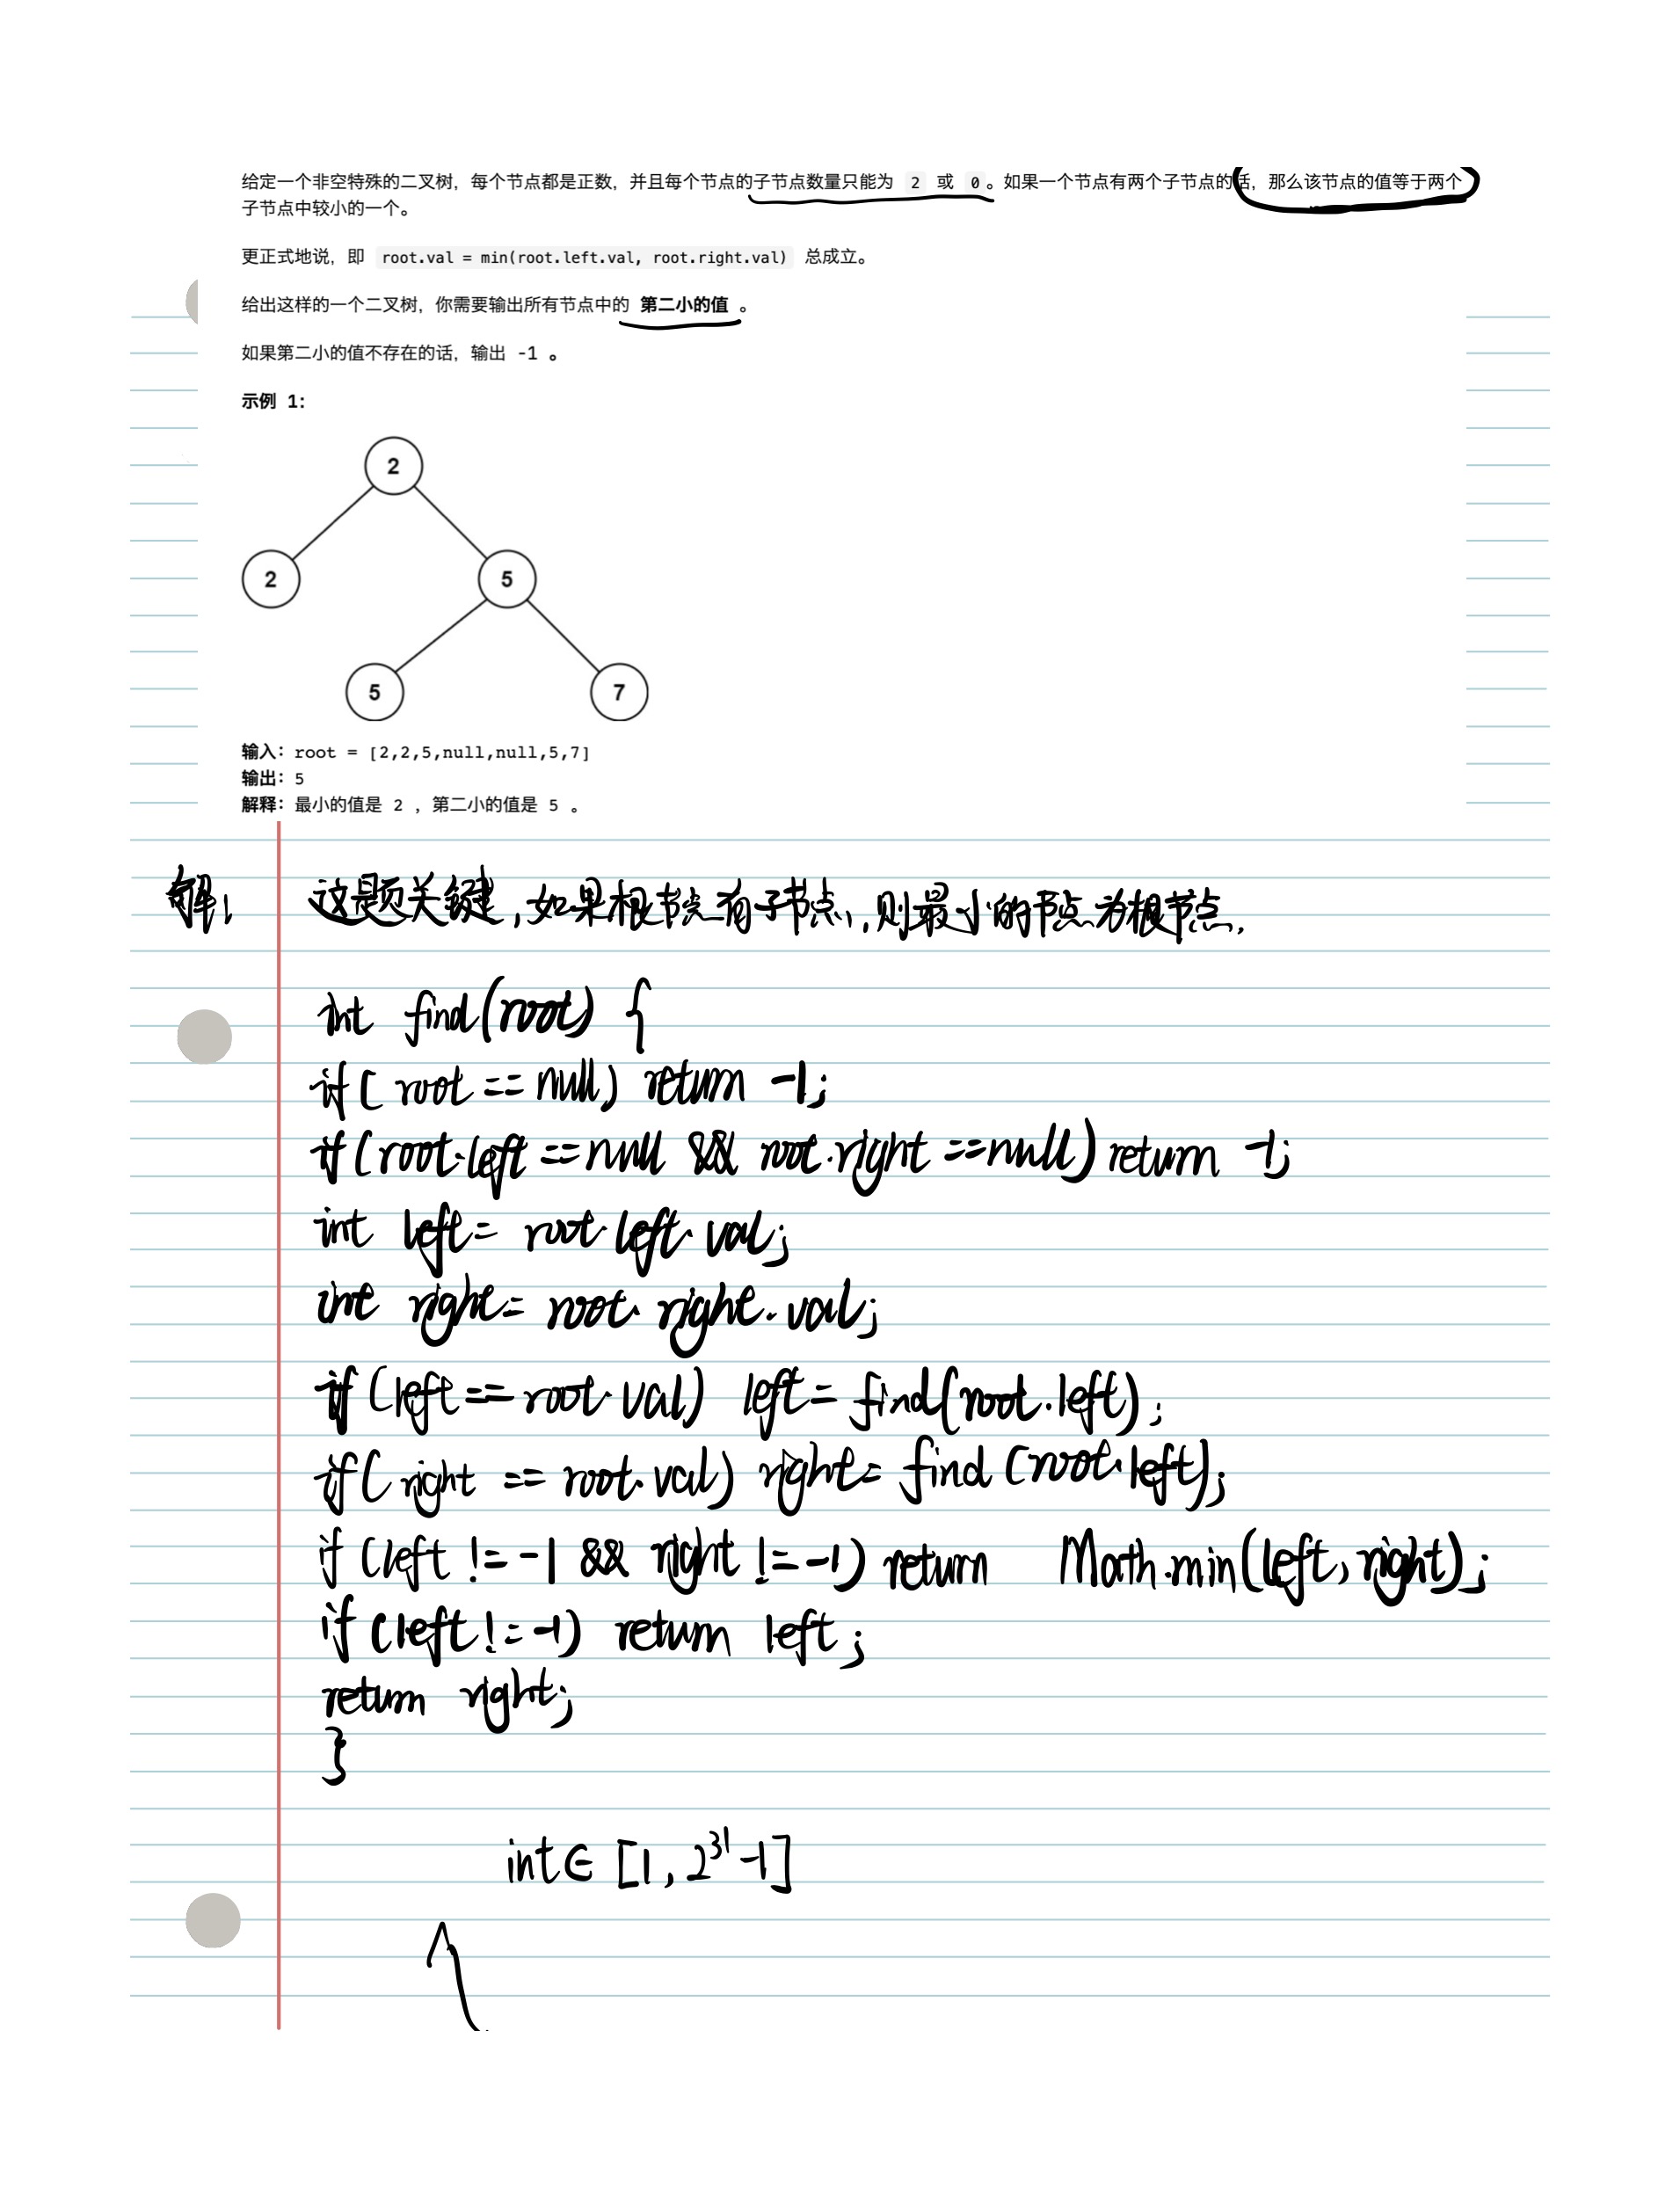 给定一个非空特殊的二叉树，每个节点都是正数，并且每个节点的子节点数量只能为 2 或 0。如果一个节点有两个子节点的话，那么该节点的值等于两个
子节点中较小的一个。
更正式地说，即 root.val = min(root.left.val, root.right.val) 总成立。
给出这样的一个二叉树，你需要输出所有节点中的 第二小的值 。
如果第二小的值不存在的话，输出 -1 。
示例 1:
2
2 5
5 7
输入：root = [2,2,5,null,null,5,7]
输出：5
解释：最小的值是 2 ，第二小的值是 5 。
解: 这题关键,如果根节点有子节点,则最小的节点为根节点.
int find(root) {
if( root == null) return -1;
if(root.left ==null && root.right ==null) return -1;
int left= root.left.val;
int right= root.right.val;
if (left==root.val) left= find(root.left);
if( right == root.val) right= find (root.left);
if (left !=-1 && right !=-1) return Math.min(left, right);
if (left !=-1) return left;
return right;
}
int∈ [1, 2³¹-1]